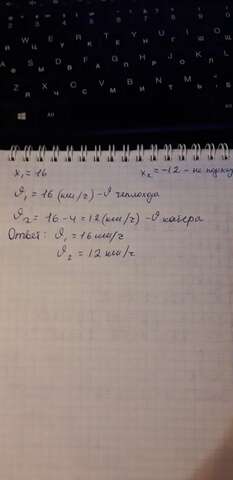 x₁ = 16 x₂ = -12 - не подход
𝜗₁ = 16 (км/ч) - 𝜗 теплохода
𝜗₂ = 16 - 4 = 12 (км/ч) - 𝜗 катера
Ответ: 𝜗₁ = 16 км/ч
𝜗₂ = 12 км/ч